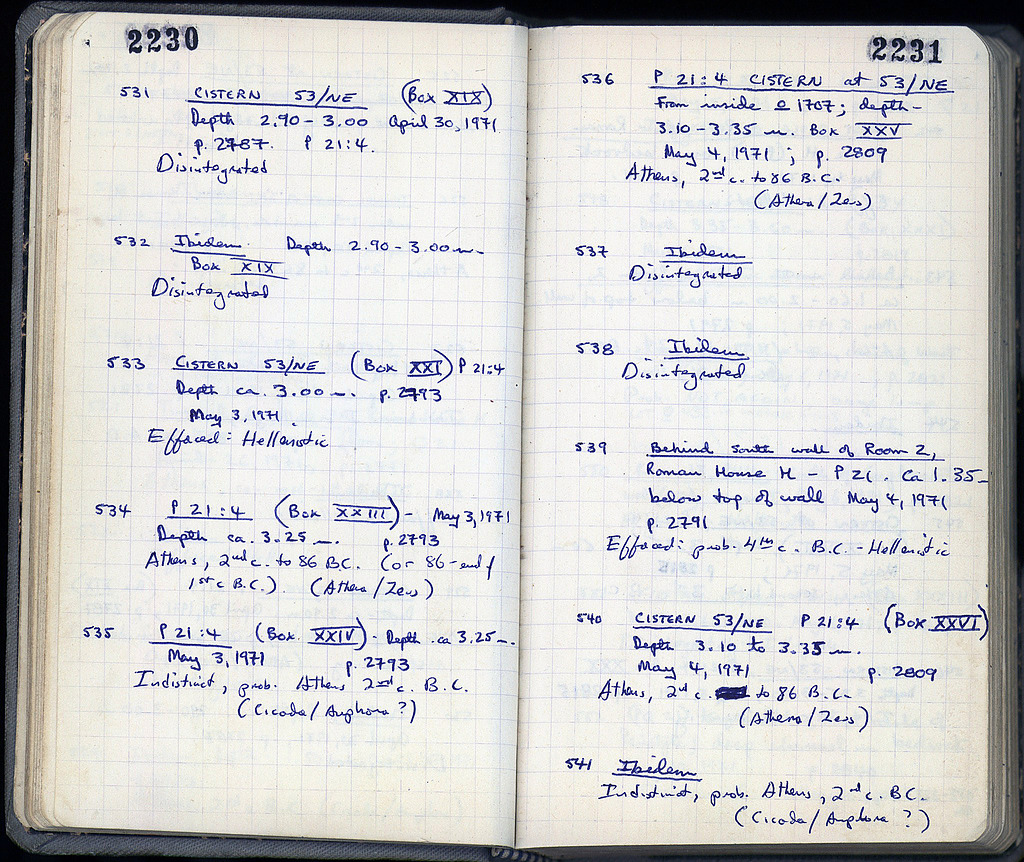 2230
531 CISTERN 53/NE (Box XIX)
Depth 2.90-3.00 April 30, 1971
p. 2787. P 21:4.
Disintegrated
532 Ibidem. Depth 2.90-3.00 m.
Box XIX
Disintegrated
533 CISTERN 53/NE (Box XXI) P 21:4
Depth ca. 3.00 m. p. 2793
May 3, 1971.
Effaced: Hellenistic
534 P 21:4 (Box XXIII) - May 3, 1971
Depth ca. 3.25 m. p. 2793
Athens, 2nd c. to 86 B.C. (or 86-end of
1st c B.C.). (Athena/Zeus)
535 P 21:4 (Box XXIV) - Depth ca 3.25 m.
May 3, 1971 p. 2793
Indistinct, prob. Athens 2nd c. B.C.
(Cicada/Amphora?)
2231
536 P 21:4 CISTERN at 53/NE
From inside 1707; depth -
3.10-3.35 m. Box XXV
May 4, 1971; p. 2809
Athens, 2nd c. to 86 B.C.
(Athena/Zeus)
537 Ibidem
Disintegrated
538 Ibidem
Disintegrated
539 Behind south wall of Room 2,
Roman House H - P 21. Ca 1.35 m
below top of wall May 4, 1971
p. 2791
Effaced: prob. 4th c. B.C. - Hellenistic
540 CISTERN 53/NE P 21:4 (Box XXVI)
Depth 3.10 to 3.35 m.
May 4, 1971 p. 2809
Athens, 2nd c. to 86 B.C.
(Athena/Zeus)
541 Ibidem
Indistinct, prob. Athens, 2nd c. B.C.
(Cicada/Amphora?)